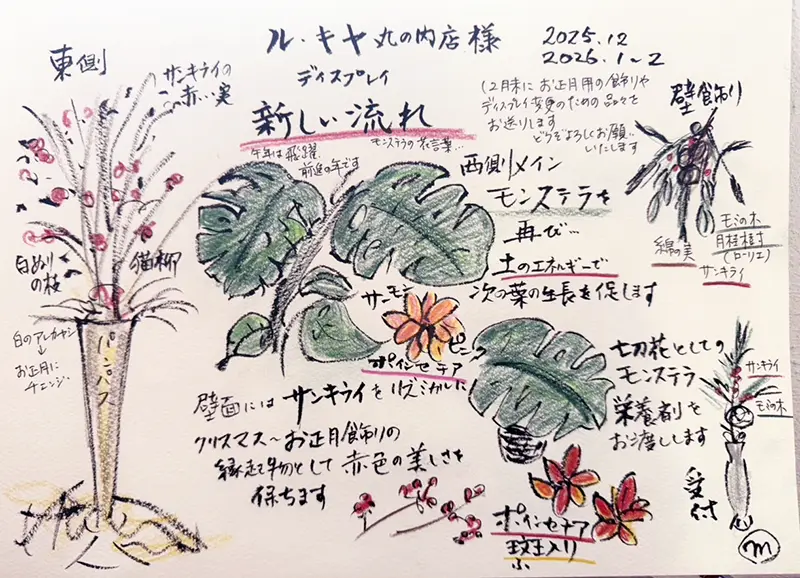 ル・キヤ 丸の内店 様
2025.12
2026.1~2
ディスプレイ
新しい流れ
午年は飛躍、
前進の年です
モンステラの花言葉…
(12月末にお正月用の飾りや
ディスプレイ変更のための品々を
お送りします
どうぞよろしくお願い
いたします
東側
サンキライの
赤い実
白ぬりの枝
猫柳
白のアレカヤシ
↓
お正月に
チェンジ…
西側メイン
モンステラを
再び…
土のエネルギーで
次の葉の生長を促します
サーモン
ピンク
ポインセチア
壁飾り
モミの木
月桂樹
(ローリエ)
綿の実
サンキライ
壁面には サンキライを リズミカルに
クリスマス~お正月飾りの
縁起物として 赤色の美しさを
保ちます
切花としての
モンステラ
栄養剤を
お渡しします
ポインセチア
斑入り
ふ
サンキライ
モミの木
受付
m